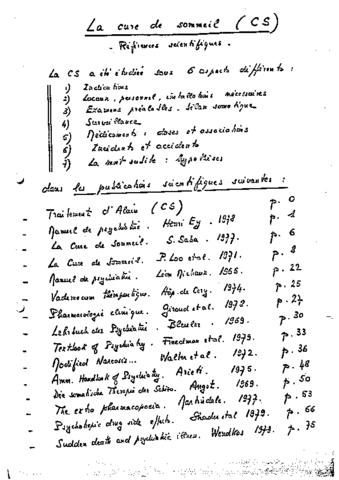 La cure de sommeil (CS)
- Références scientifiques -
La CS a été étudiée sous 6 aspects différents :
1) Indications
2) Locaux, personnel, installations nécessaires
3) Examens préalables. Bilan somatique
4) Surveillance
5) Médicaments : doses et associations
6) Incidents et accidents
7) La mort subite : hypothèses
dans les publications scientifiques suivantes :
- Traitement d'Alain (CS) p. 0
- Manuel de psychiatrie. Henri Ey. 1978 p. 1
- La Cure de Sommeil. S. Saba. 1977. p. 6
- La Cure de Sommeil. P. Loo et al. 1971. p. 8
- Manuel de psychiatrie. Léon Michaux. 1966. p. 22
- Vademecum thérapeutique. Hôp. de Cery. 1974. p. 25
- Pharmacologie clinique. Giroud et al. 1978. p. 27
- Lehrbuch der Psychiatrie. Bleuler. 1969. p. 30
- Textbook of Psychiatry. Freedman et al. 1979. p. 33
- Modified Narcosis... Walter et al. 1972. p. 36
- Amer. Handbook of Psychiatry. Arieti. 1975. p. 48
- Die somatische Therapie der Schizo. Angst. 1969. p. 50
- The extra pharmacopoeia. Martindale. 1977. p. 53
- Psychotropic drug side effects. Shader et al 1979. p. 66
- Sudden death and psychiatric illness. Wendkos 1979. p. 75